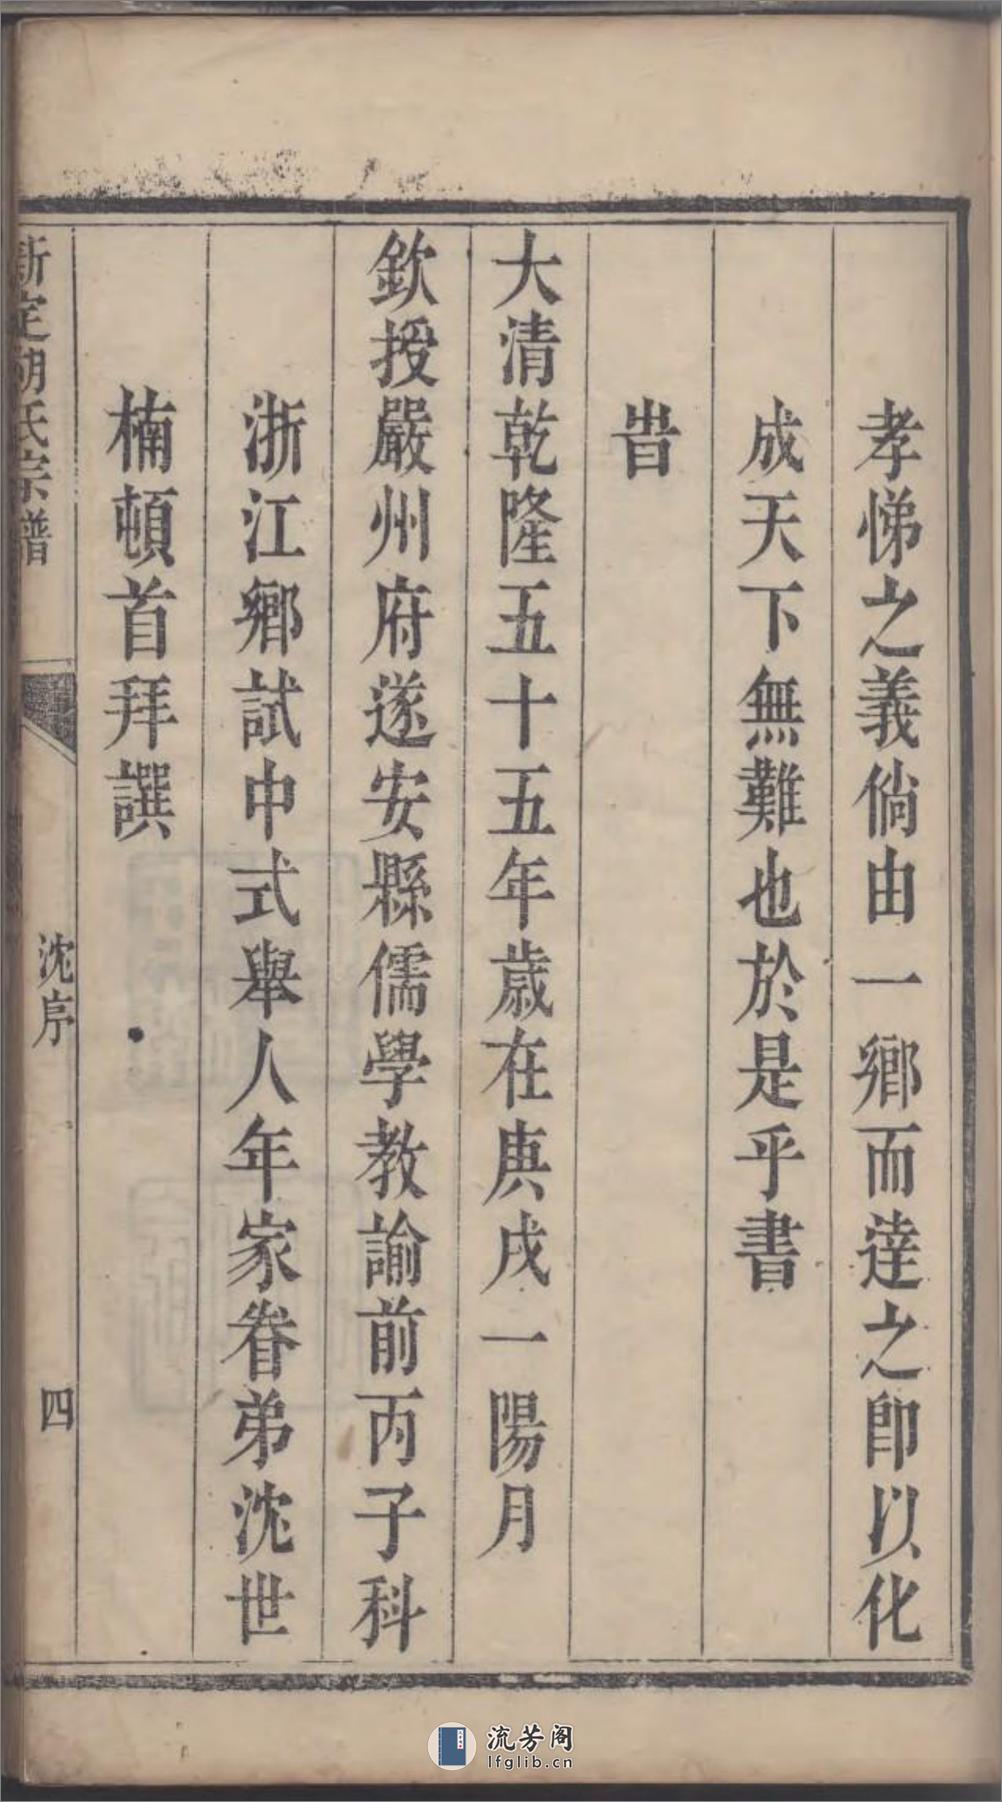 孝悌之義倘由一鄉而達之即以化
成天下無難也於是乎書
旹
大清乾隆五十五年歲在庚戌一陽月
欽授嚴州府遂安縣儒學教諭前丙子科
浙江鄉試中式舉人年家眷弟沈世
楠頓首拜譔
新定胡氏宗譜
沈序
四
流芳阁
lfglib.cn